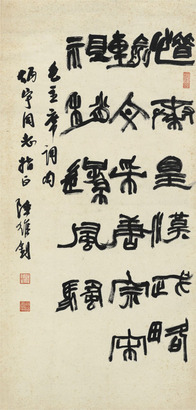 惜秦皇漢武略
輸文采唐宗宋
祖稍遜風騷
毛主席詞句
同志指正 陸維釗